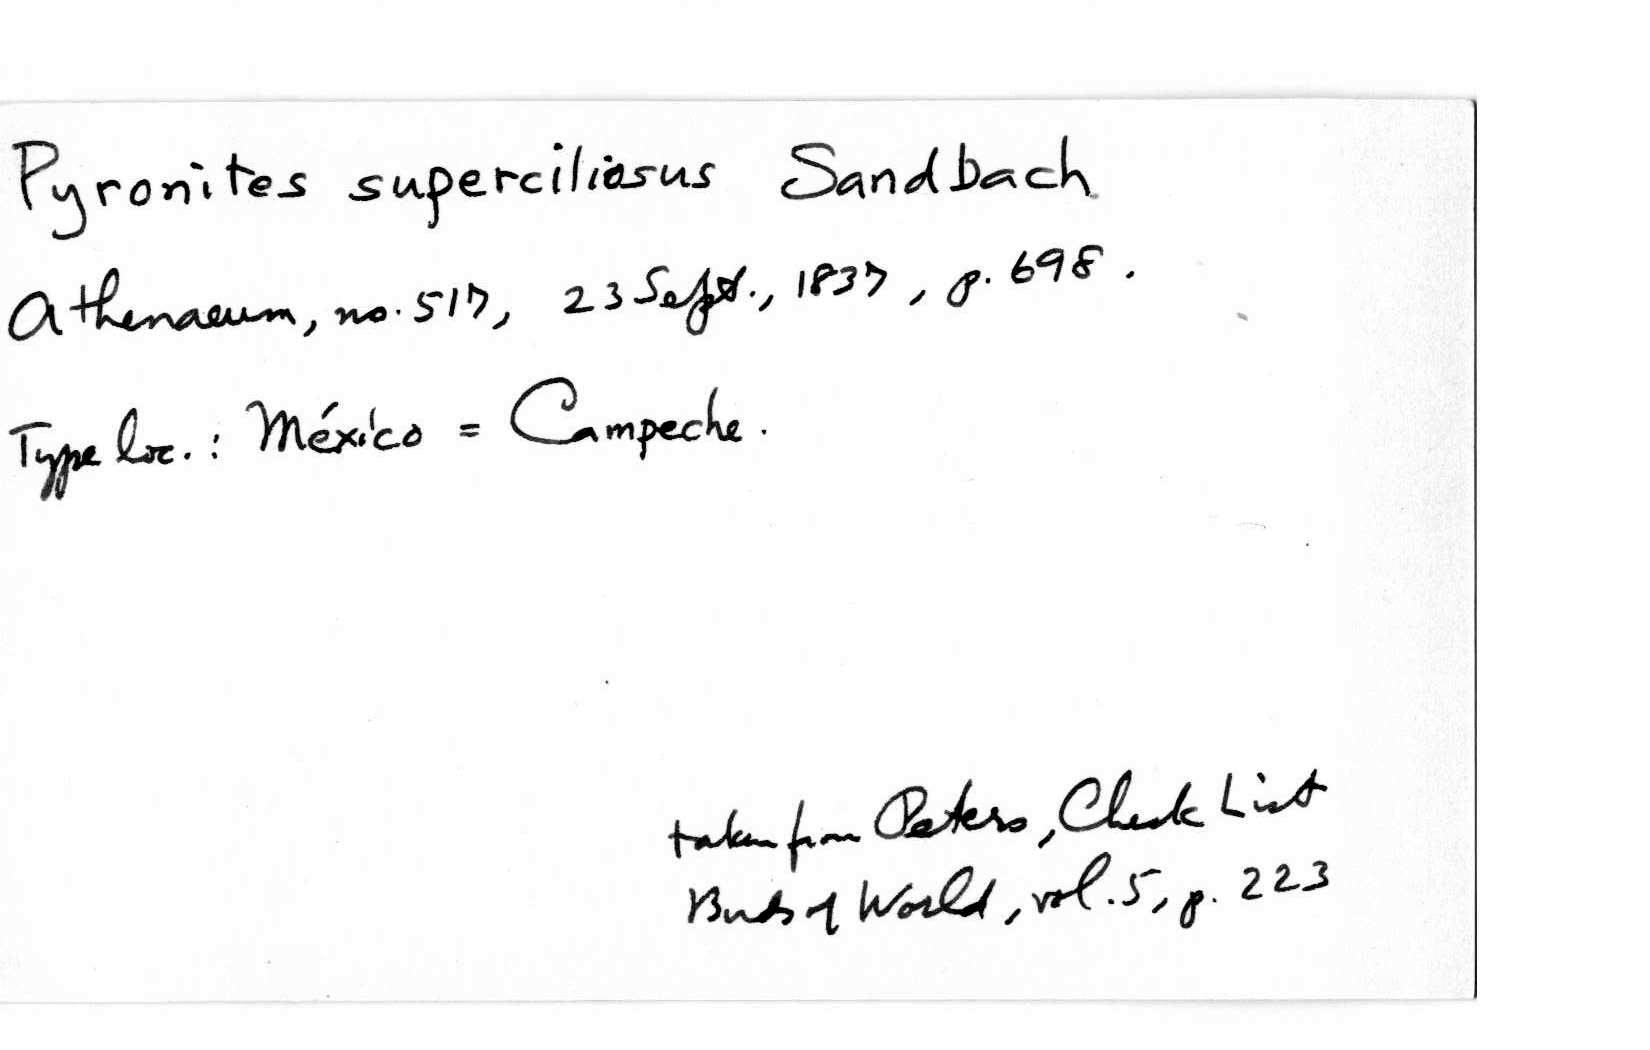 Pyronites superciliosus Sandbach
Athenaeum, no. 517, 23 Sept., 1837, p. 698.
Type loc.: México = Campeche.
taken from Peters, Check List
Birds of World, vol. 5, p. 223